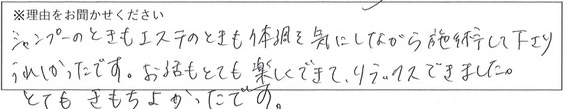 ※理由をお聞かせください
シャンプーのときもエステのときも体調を気にしながら施術して下さり
うれしかったです。お話もとても楽しくできて、リラックスできました。
とてもきもちよかったです。